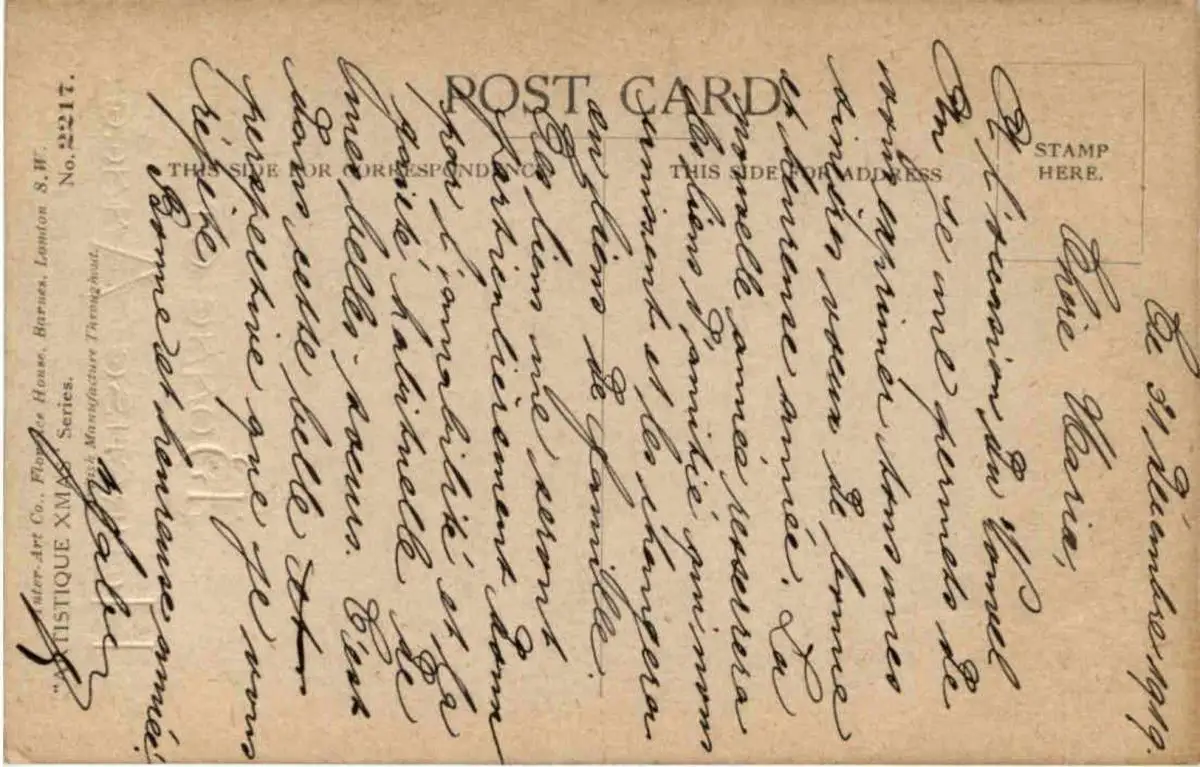 POST CARD
THIS SIDE FOR CORRESPONDENCE
THIS SIDE FOR ADDRESS
STAMP
HERE.
Ce 31 Décembre, 1919.
Chère Maria,
A l'occasion du Nouvel
An je me permets de
vous exprimer tous mes
sincères voeux de bonne
et heureuse année. La
nouvelle année resserrera
les liens d'amitié qui nous
unissent et les changera
en liens de famille.
Ces liens me seront
particulièrement doux
par l'amabilité et la
gaieté habituelle de
mes belles-soeurs. C'est
dans cette belle
perspective que je vous
répète
Bonne et heureuse année!
"ARTISTIQUE XMAS" Series.
No. 2217.
Art Co., House, Barnes, London S.W.
Manufacture Throughout.